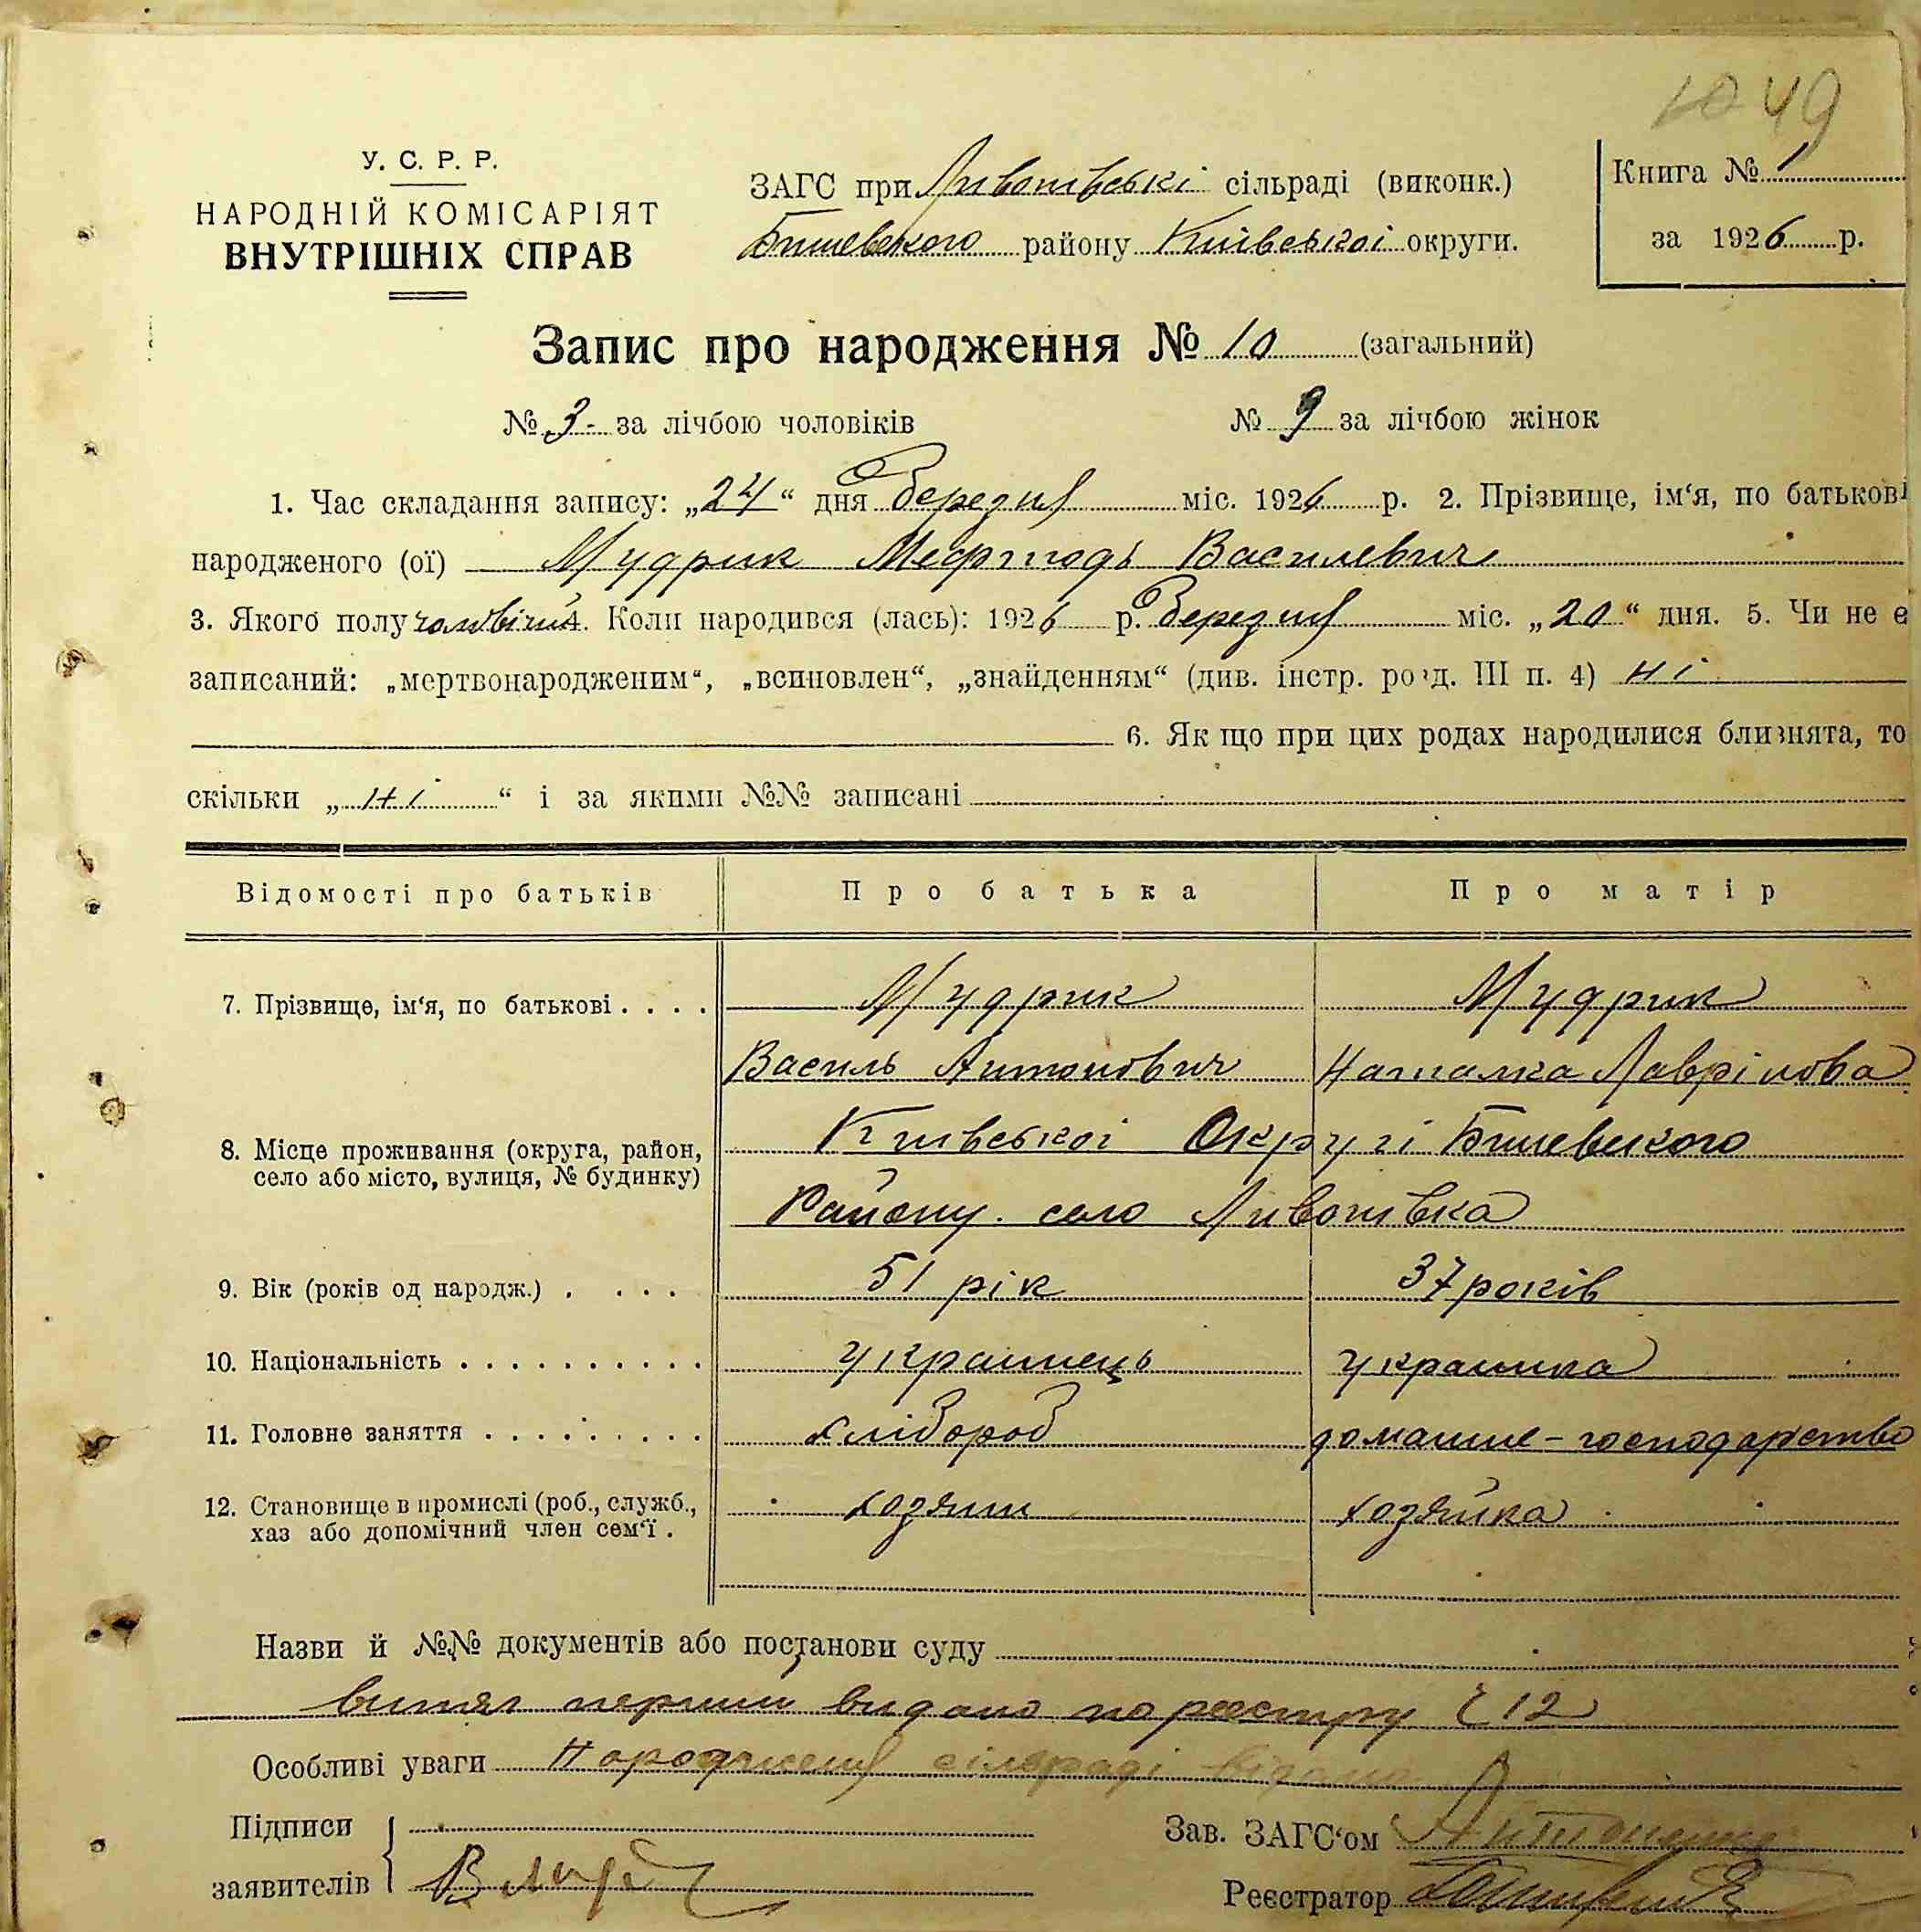 49
У. С. Р. Р.
НАРОДНІЙ КОМІСАРІЯТ
ВНУТРІШНІХ СПРАВ
ЗАГС при Липотвські сільраді (виконк.)
Бишевского району Київської округи.
Книга № 1
за 1926 р.
Запис про народження № 10 (загальний)
№ 3 за лічбою чоловіків № 9 за лічбою жінок
1. Час складання запису: „24“ дня березня міс. 1926 р. 2. Прізвище, ім‘я, по батькові
народженого (ої) Мудрик Мефтодь Василевич
3. Якого полу Коли народився (лась): 1926 р. березня міс. „20“ дня. 5. Чи не є
записаний: „мертвонародженим“, „всиновлен“, „знайденням“ (див. інстр. розд. III п. 4) ні
6. Як що при цих родах народилися близнята, то
скільки „ні“ і за якими №№ записані
Відомості про батьків Про батька Про матір
7. Прізвище, ім‘я, по батькові . . . . Мудрик Мудрик
Василь Антонович Наталка Лаврінова
8. Місце проживання (округа, район, Київської Округі Бишевского
село або місто, вулиця, № будинку) Району. село
9. Вік (років од народж.) . . . . 51 рік 37 років
10. Національність . . . . . . . . . . українець українка
11. Головне заняття . . . . . . . . . хлібороб домашне - господарство
12. Становище в промислі (роб., служб., хозяин хозяйка
хаз або допомічний член сем‘ї .
Назви й №№ документів або постанови суду
витяг перший видано по реестру 12
Особливі уваги Народження сільраді
Підписи
заявителів
Зав. ЗАГС‘ом
Реєстратор